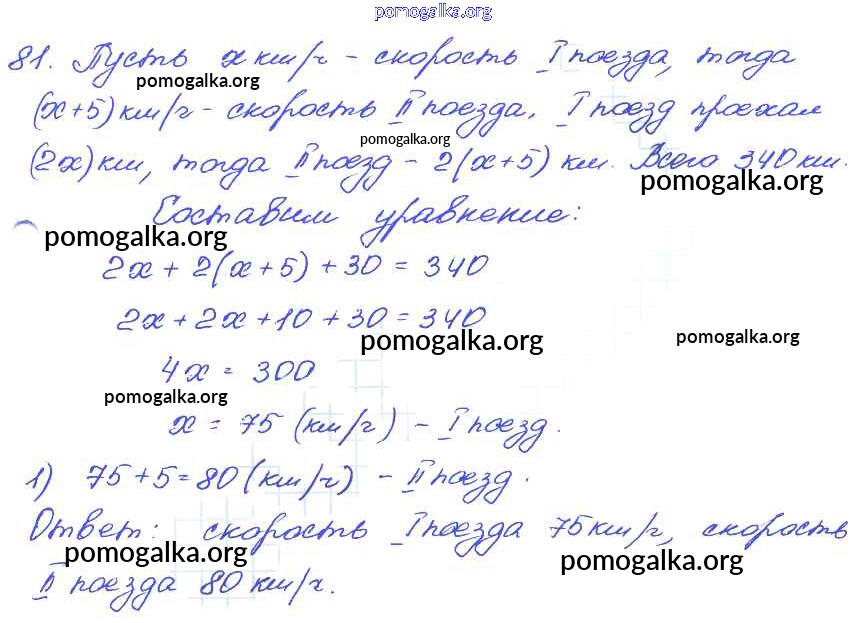 pomogalka.org
81. Пусть x км/ч - скорость I поезда, тогда
pomogalka.org
(x+5) км/ч - скорость II поезда. I поезд проехал
pomogalka.org
(2x) км, тогда II поезд - 2(x+5) км. Всего 340 км.
pomogalka.org
Составим уравнение:
pomogalka.org
2x + 2(x+5) + 30 = 340
2x + 2x + 10 + 30 = 340
pomogalka.org pomogalka.org
4x = 300
pomogalka.org
x = 75 (км/ч) - I поезд.
1) 75 + 5 = 80 (км/ч) - II поезд.
Ответ: скорость I поезда 75 км/ч, скорость
pomogalka.org pomogalka.org
II поезда 80 км/ч.